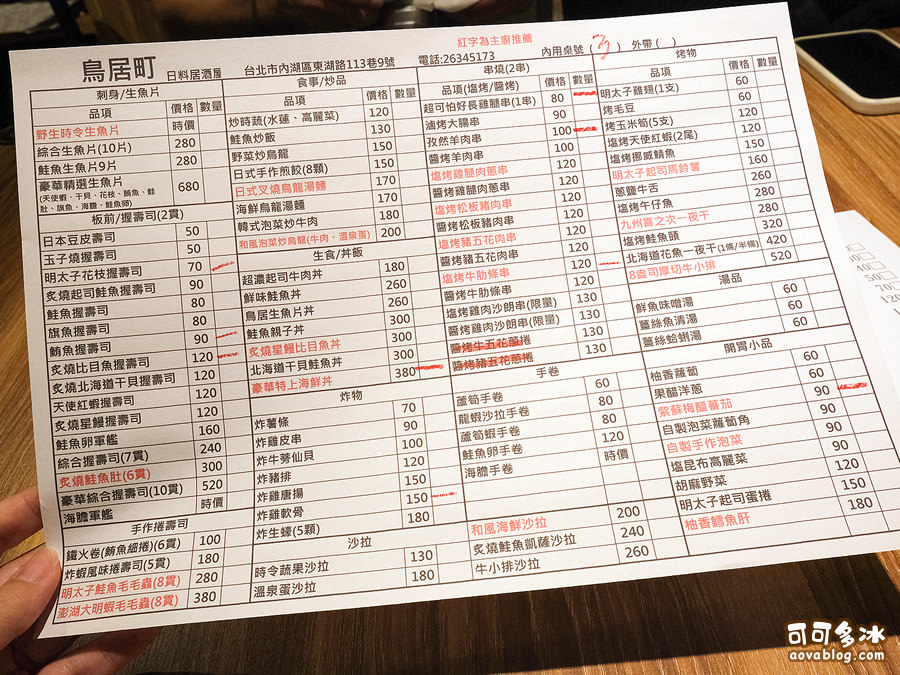 鳥居町 日料居酒屋 台北市內湖區東湖路113巷9號 電話:26345173
紅字為主廚推薦
內用桌號( 3 ) 外帶( )
刺身/生魚片
品項 價格 數量
野生時令生魚片 時價
綜合生魚片(10片) 280
鮭魚生魚片9片 280
豪華精選生魚片 680
(天使蝦、干貝、花枝、鮪魚、鮭
肚、旗魚、海膽、鮭魚卵)
板前/握壽司(2貫)
日本豆皮壽司 50
玉子燒握壽司 50
明太子花枝握壽司 70
炙燒起司鮭魚握壽司 90
鮭魚握壽司 80
旗魚握壽司 80
鮪魚握壽司 90
炙燒比目魚握壽司 120
炙燒北海道干貝握壽司 120
天使紅蝦握壽司 120
炙燒星鰻握壽司 120
鮭魚卵軍艦 160
綜合握壽司(7貫) 240
炙燒鮭魚肚(6貫) 300
豪華綜合握壽司(10貫) 520
海膽軍艦 時價
手作捲壽司
鐵火卷(鮪魚細捲)(6貫) 100
炸蝦風味捲壽司(5貫) 180
明太子鮭魚毛毛蟲(8貫) 280
澎湖大明蝦毛毛蟲(8貫) 380
食事/炒品
品項 價格 數量
炒時蔬(水蓮、高麗菜) 120
鮭魚炒飯 130
野菜炒烏龍 150
日式手作煎餃(8顆) 150
日式叉燒烏龍湯麵 170
海鮮烏龍湯麵 170
韓式泡菜炒牛肉 180
和風泡菜炒烏龍(牛肉、溫泉蛋) 200
生食/丼飯
超濃起司牛肉丼 180
鮮味鮭魚丼 260
鳥居生魚片丼 260
鮭魚親子丼 300
炙燒星鰻比目魚丼 300
北海道干貝鮭魚丼 300
豪華特上海鮮丼 380
炸物
炸薯條 70
炸雞皮串 90
炸牛蒡仙貝 100
炸豬排 120
炸雞唐揚 150
炸雞軟骨 150
炸生蠔(5顆) 180
沙拉
時令蔬果沙拉 130
溫泉蛋沙拉 180
串燒(2串)
品項(塩烤/醬烤) 價格 數量
超可怕好長雞腿串(1串) 80
滷烤大腸串 90
孜然羊肉串 100
醬烤羊肉串 100
塩烤雞腿肉蔥串 120
醬烤雞腿肉蔥串 120
塩烤松板豬肉串 120
醬烤松板豬肉串 120
塩烤豬五花肉串 120
醬烤豬五花肉串 120
塩烤牛肋條串 120
醬烤牛肋條串 120
塩烤雞肉沙朗串(限量) 130
醬烤雞肉沙朗串(限量) 130
醬烤牛五花蔥捲 130
醬烤豬五花蔥捲 130
手卷
蘆筍手卷 60
龍蝦沙拉手卷 80
蘆筍蝦手卷 80
鮭魚卵手卷 120
海膽手卷 時價
和風海鮮沙拉 200
炙燒鮭魚凱薩沙拉 240
牛小排沙拉 260
烤物
品項 價格 數量
明太子雞翅(1支) 60
烤毛豆 60
烤玉米筍(5支) 120
塩烤天使紅蝦(2尾) 120
塩烤挪威鯖魚 150
明太子起司馬鈴薯 160
蔥鹽牛舌 260
塩烤午仔魚 280
九州喜之次一夜干 280
塩烤鮭魚頭 320
北海道花魚一夜干(1條/半條) 420
8盎司厚切牛小排 520
湯品
鮮魚味噌湯 60
薑絲魚清湯 60
薑絲蛤蜊湯 60
開胃小品
柚香蘿蔔 60
果醋洋蔥 60
紫蘇梅醋蕃茄 90
自製泡菜蘿蔔角 90
自製手作泡菜 90
塩昆布高麗菜 90
胡麻野菜 120
明太子起司蛋捲 150
柚香鱈魚肝 180
可可多冰
aovablog.com